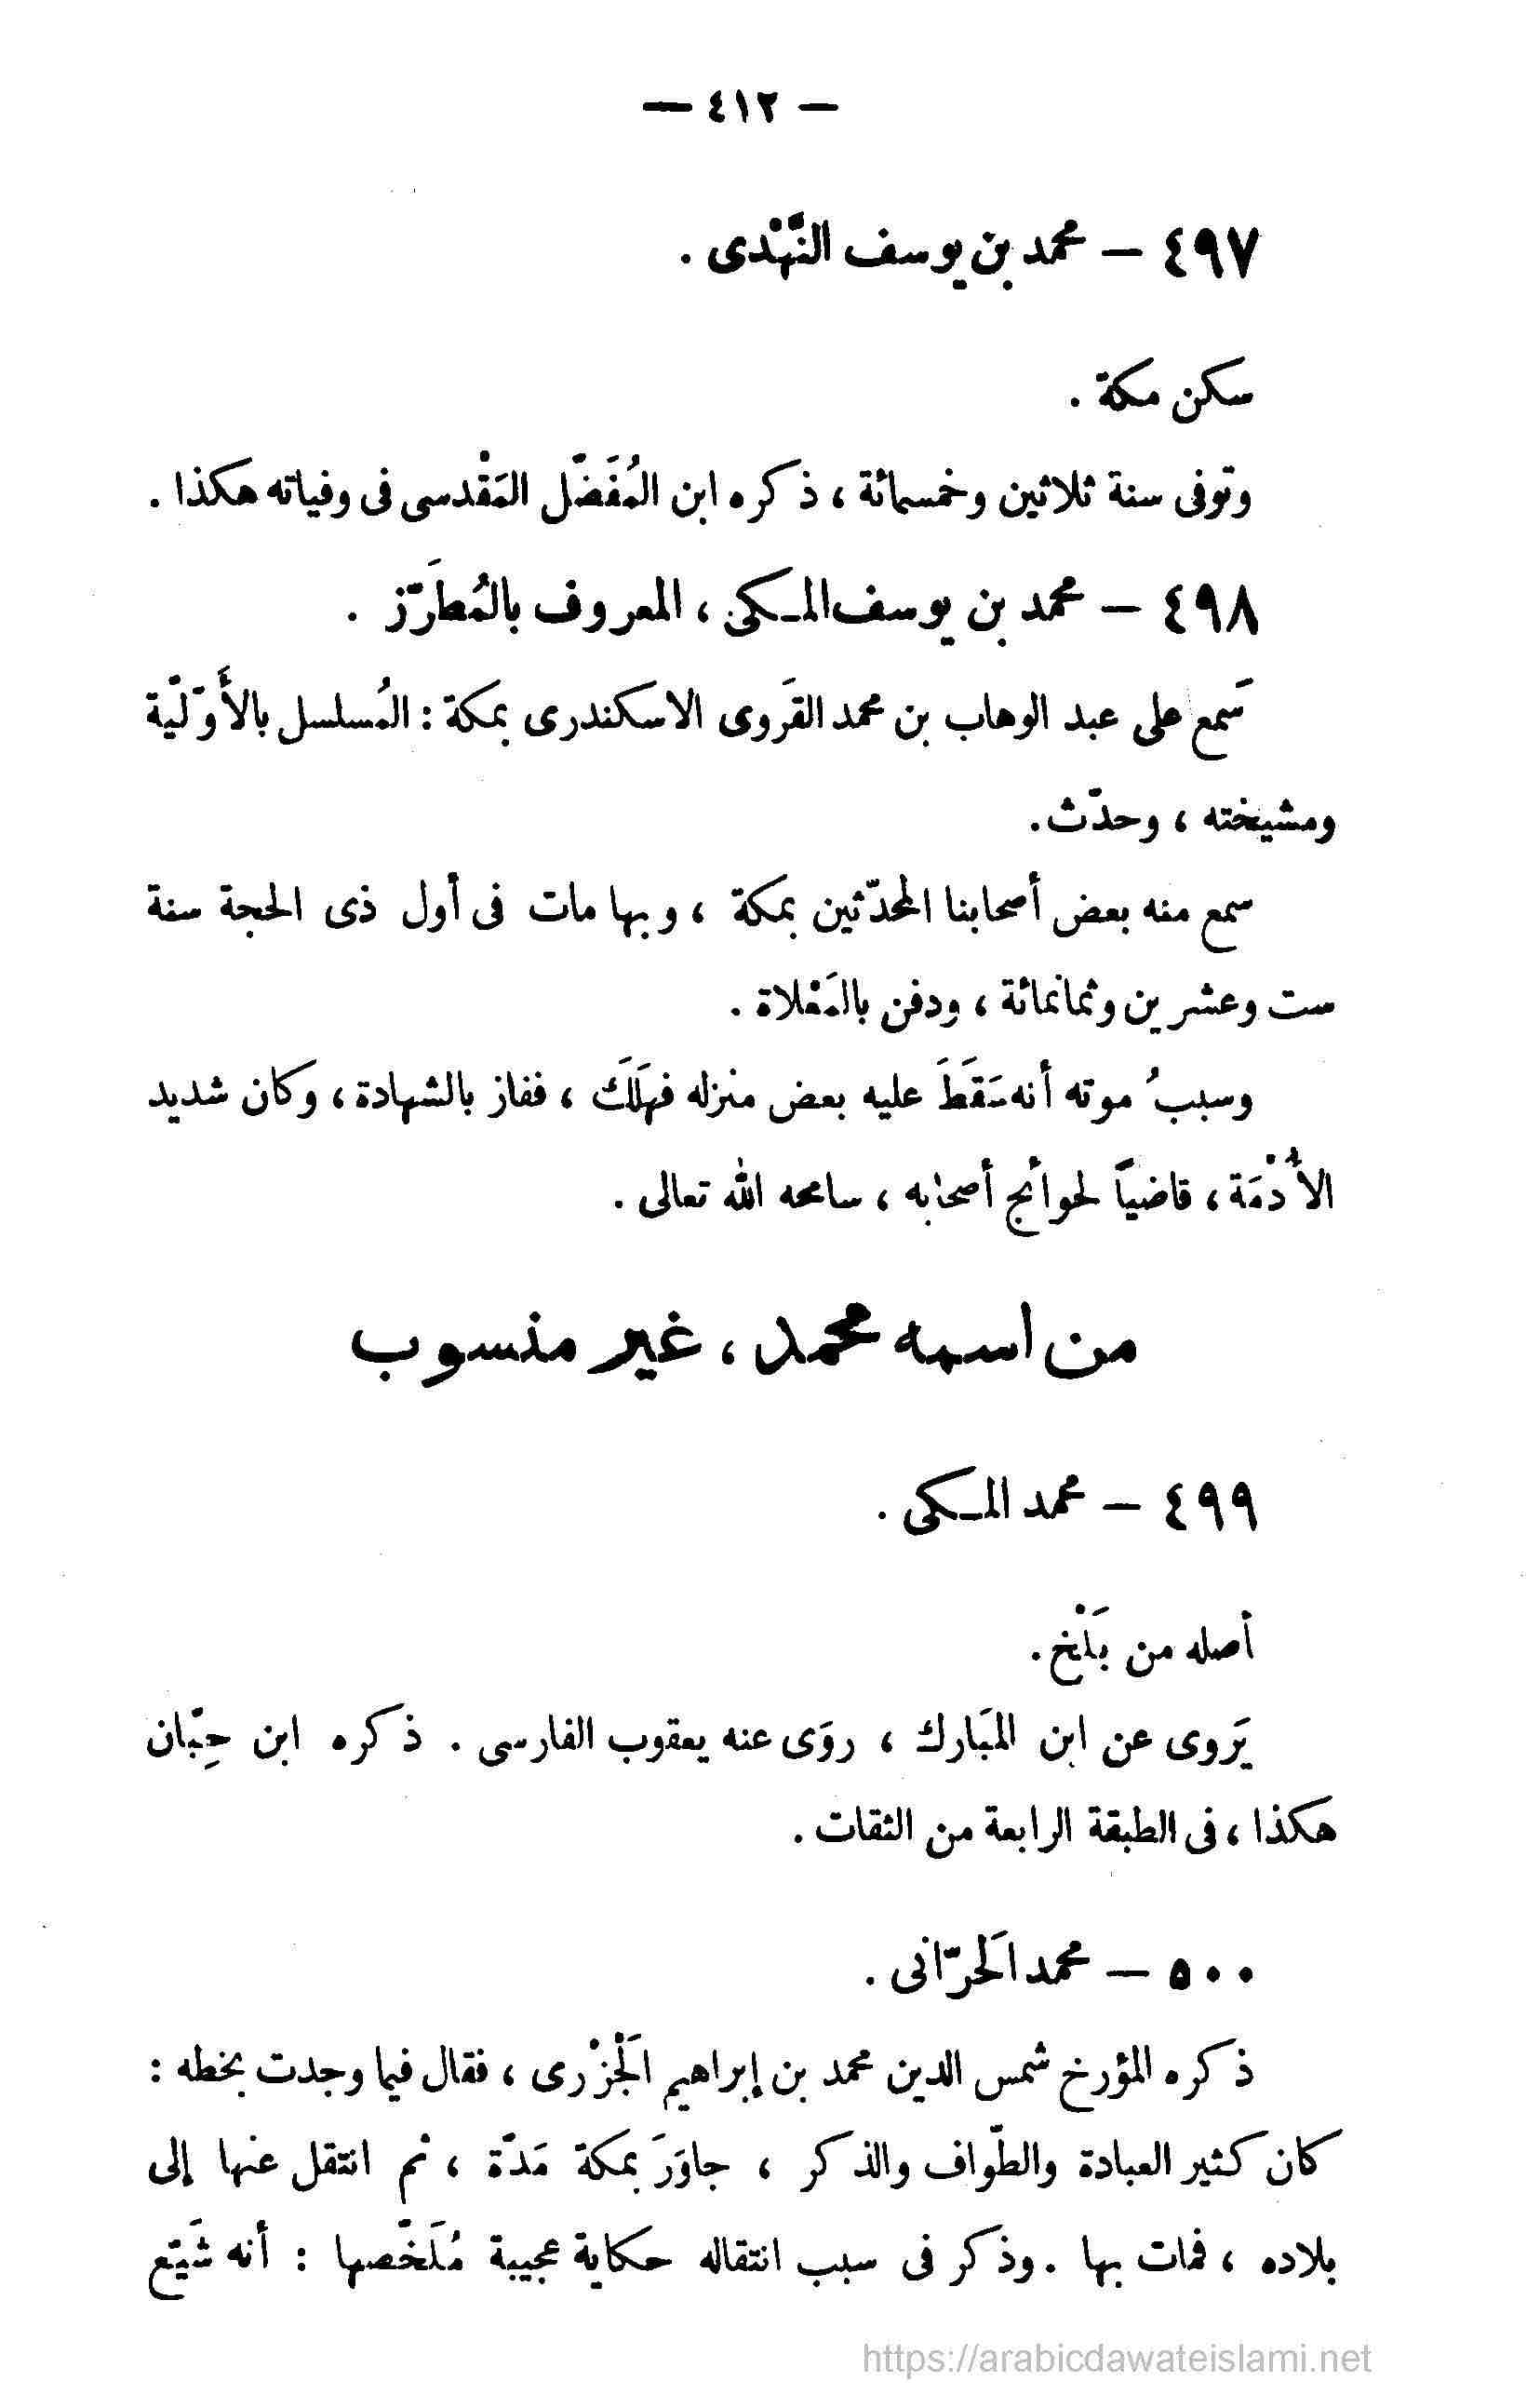 — ٤١٢ —
٤٩٧ — محمد بن يوسف النَّهْدى .
سكن مكة .
وتوفى سنة ثلاثين وخمسمائة ، ذكره ابن المُفَضَّل المَقْدسى فى وفياته هكذا .
٤٩٨ — محمد بن يوسف المـكى ، المعروف بالمُطَرّز .
سَمع على عبد الوهاب بن محمد القَروى الاسكندرى بمكة : المُسلسل بالأَوّلّية
ومشيخته ، وحدّث .
سمع منه بعض أصحابنا المحدّثين بمكة ، وبها مات فى أول ذى الحجة سنة
ست وعشرين وثمانمائة ، ودفن بالمَعْلاة .
وسببُ موته أنه سَقَطَ عليه بعض منزله فهلَكَ ، ففاز بالشهادة ، وكان شديد
الأُدْمَة ، قاضياً لحوائج أصحابه ، سامحه الله تعالى .
من اسمه محمد ، غير منسوب
٤٩٩ — محمد المـكى .
أصله من بَلْخ .
يَروى عن ابن المبَارك ، روَى عنه يعقوب الفارسى . ذكره ابن حِبّان
هكذا ، فى الطبقة الرابعة من الثقات .
٥٠٠ — محمد الَحرّانى .
ذكره المؤرخ شمس الدين محمد بن إبراهيم الَجْزرى ، فقال فيما وجدت بخطه :
كان كثير العبادة والطّواف والذكر ، جاوَرَ بمكة مَدّة ، ثم انتقل عنها إلى
بلاده ، فمات بها . وذكر فى سبب انتقاله حكاية عجيبة مُلَخّصها : أنه شَيّع
https://arabicdawateislami.net